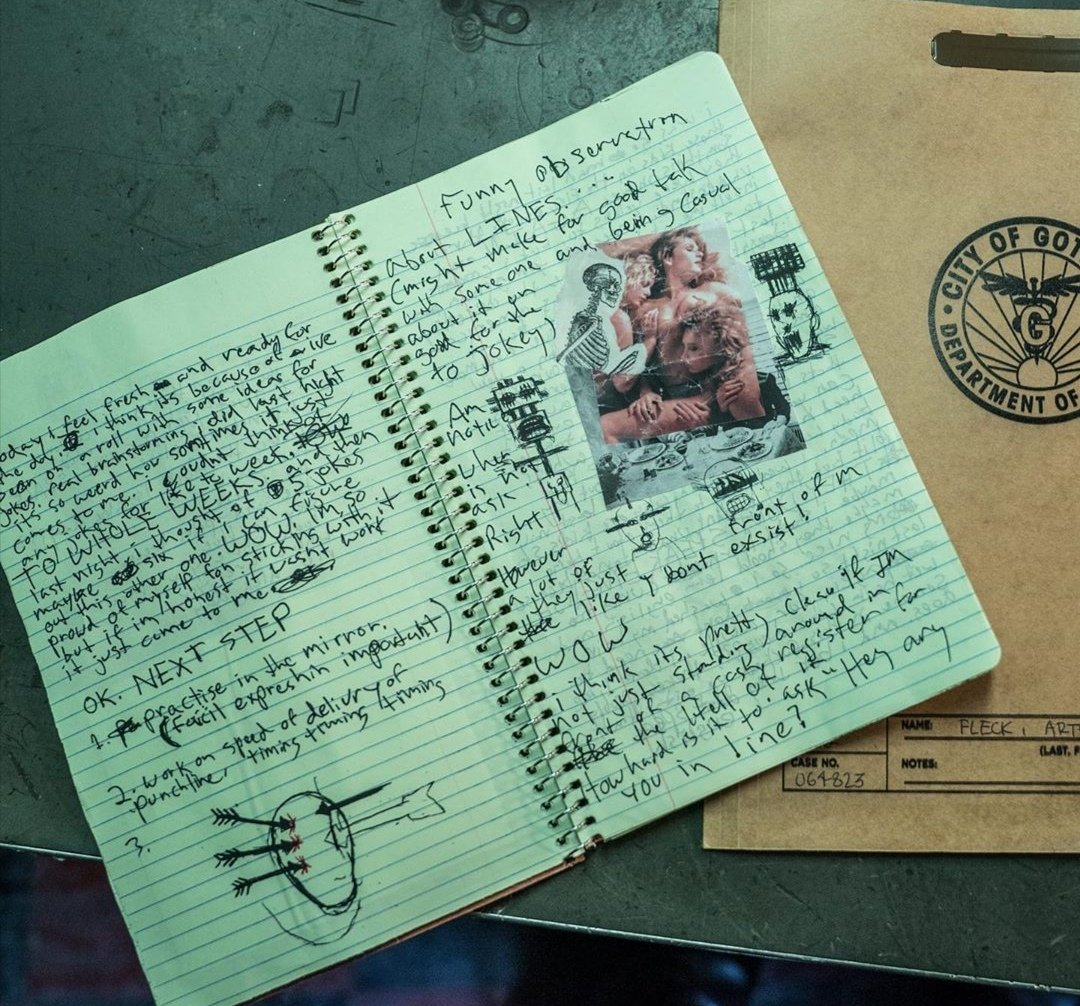 today i feel fresh and ready for
the day. i think its because of a ive
bean on a roll with some ideas for
jokes, real brainstorming i did last night
its so weerd how somtimes it just
comes to me. i cought think of
any jokes for like to week.
TO WHOLE WEEKS and then
last night i thought of 5 jokes
maybe six if i can fische
out this other one. WOW. im so
proud of myself for sticking with it
but if im honest it wasnt work
it just came to me
OK. NEXT STEP
1. practise in the mirror.
(faicil expreshin impostaht)
2. work on speed of delivry of
punchline, timing timing timing
3.
Funny observation
about LINES....
(might make for good talk
with someone and being casual
about it on
good for the
to jokey)
Am
notic
Whe
is not
ask
Right
However
a lot of front of m
they just
like y dont exsist!
WOW
i think its pretty cleau if Im
not just standing around in
front of a cash register for
the htell of it
how hard is it to ask "Hey any
you in line?
CITY OF GOT
DEPARTMENT OF
G
NAME: FLECK, ART
(LAST, F
CASE NO.
064823
NOTES: